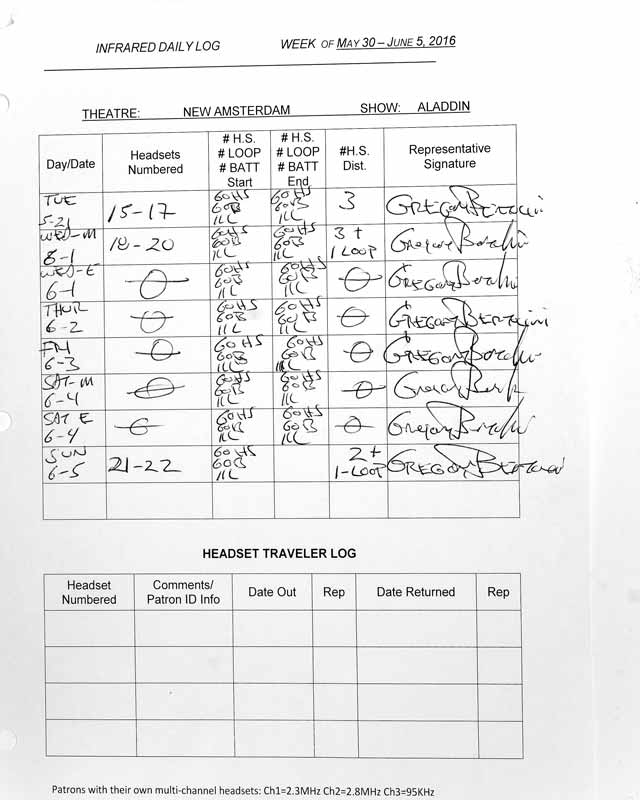 INFRARED DAILY LOG WEEK OF MAY 30 – JUNE 5, 2016
THEATRE: NEW AMSTERDAM SHOW: ALADDIN
Day/Date Headsets Numbered # H.S. # LOOP # BATT Start # H.S. # LOOP # BATT End #H.S. Dist. Representative Signature
TUE 5-21 15-17 60HS 60B 11L 60HS 60B 11L 3 GREGORY
WED-M 8-1 18-20 60HS 60B 11L 60HS 60B 11L 3 + 1 LOOP Gregory
WED-E 6-1 0 60HS 60B 11L 60HS 60B 11L 0 GREGORY
THUR 6-2 0 60HS 60B 11L 60HS 60B 11L 0 GREGORY
FRI 6-3 0 60HS 60B 11L 60HS 60B 11L 0 GREGORY
SAT-M 6-4 0 60HS 60B 11L 60HS 60B 11L 0 Gregory
SAT E 6-4 0 60HS 60B 11L 60HS 60B 11L 0 Gregory
SUN 6-5 21-22 60HS 60B 11L 60HS 60B 11L 2 + 1-LOOP GREGORY
HEADSET TRAVELER LOG
Headset Numbered Comments/ Patron ID Info Date Out Rep Date Returned Rep
Patrons with their own multi-channel headsets: Ch1=2.3MHz Ch2=2.8MHz Ch3=95KHz